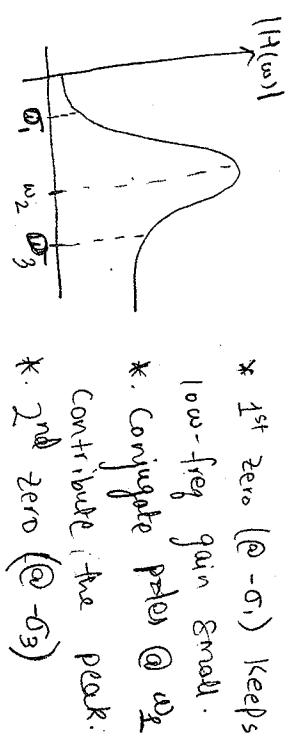 |H(ω)|
σ1
ω2
ω3
* 1st zero (@ -σ1) keeps
low-freq gain small.
* Conjugate poles @ ω2
contribute the peak.
* 2nd zero (@ -σ3)